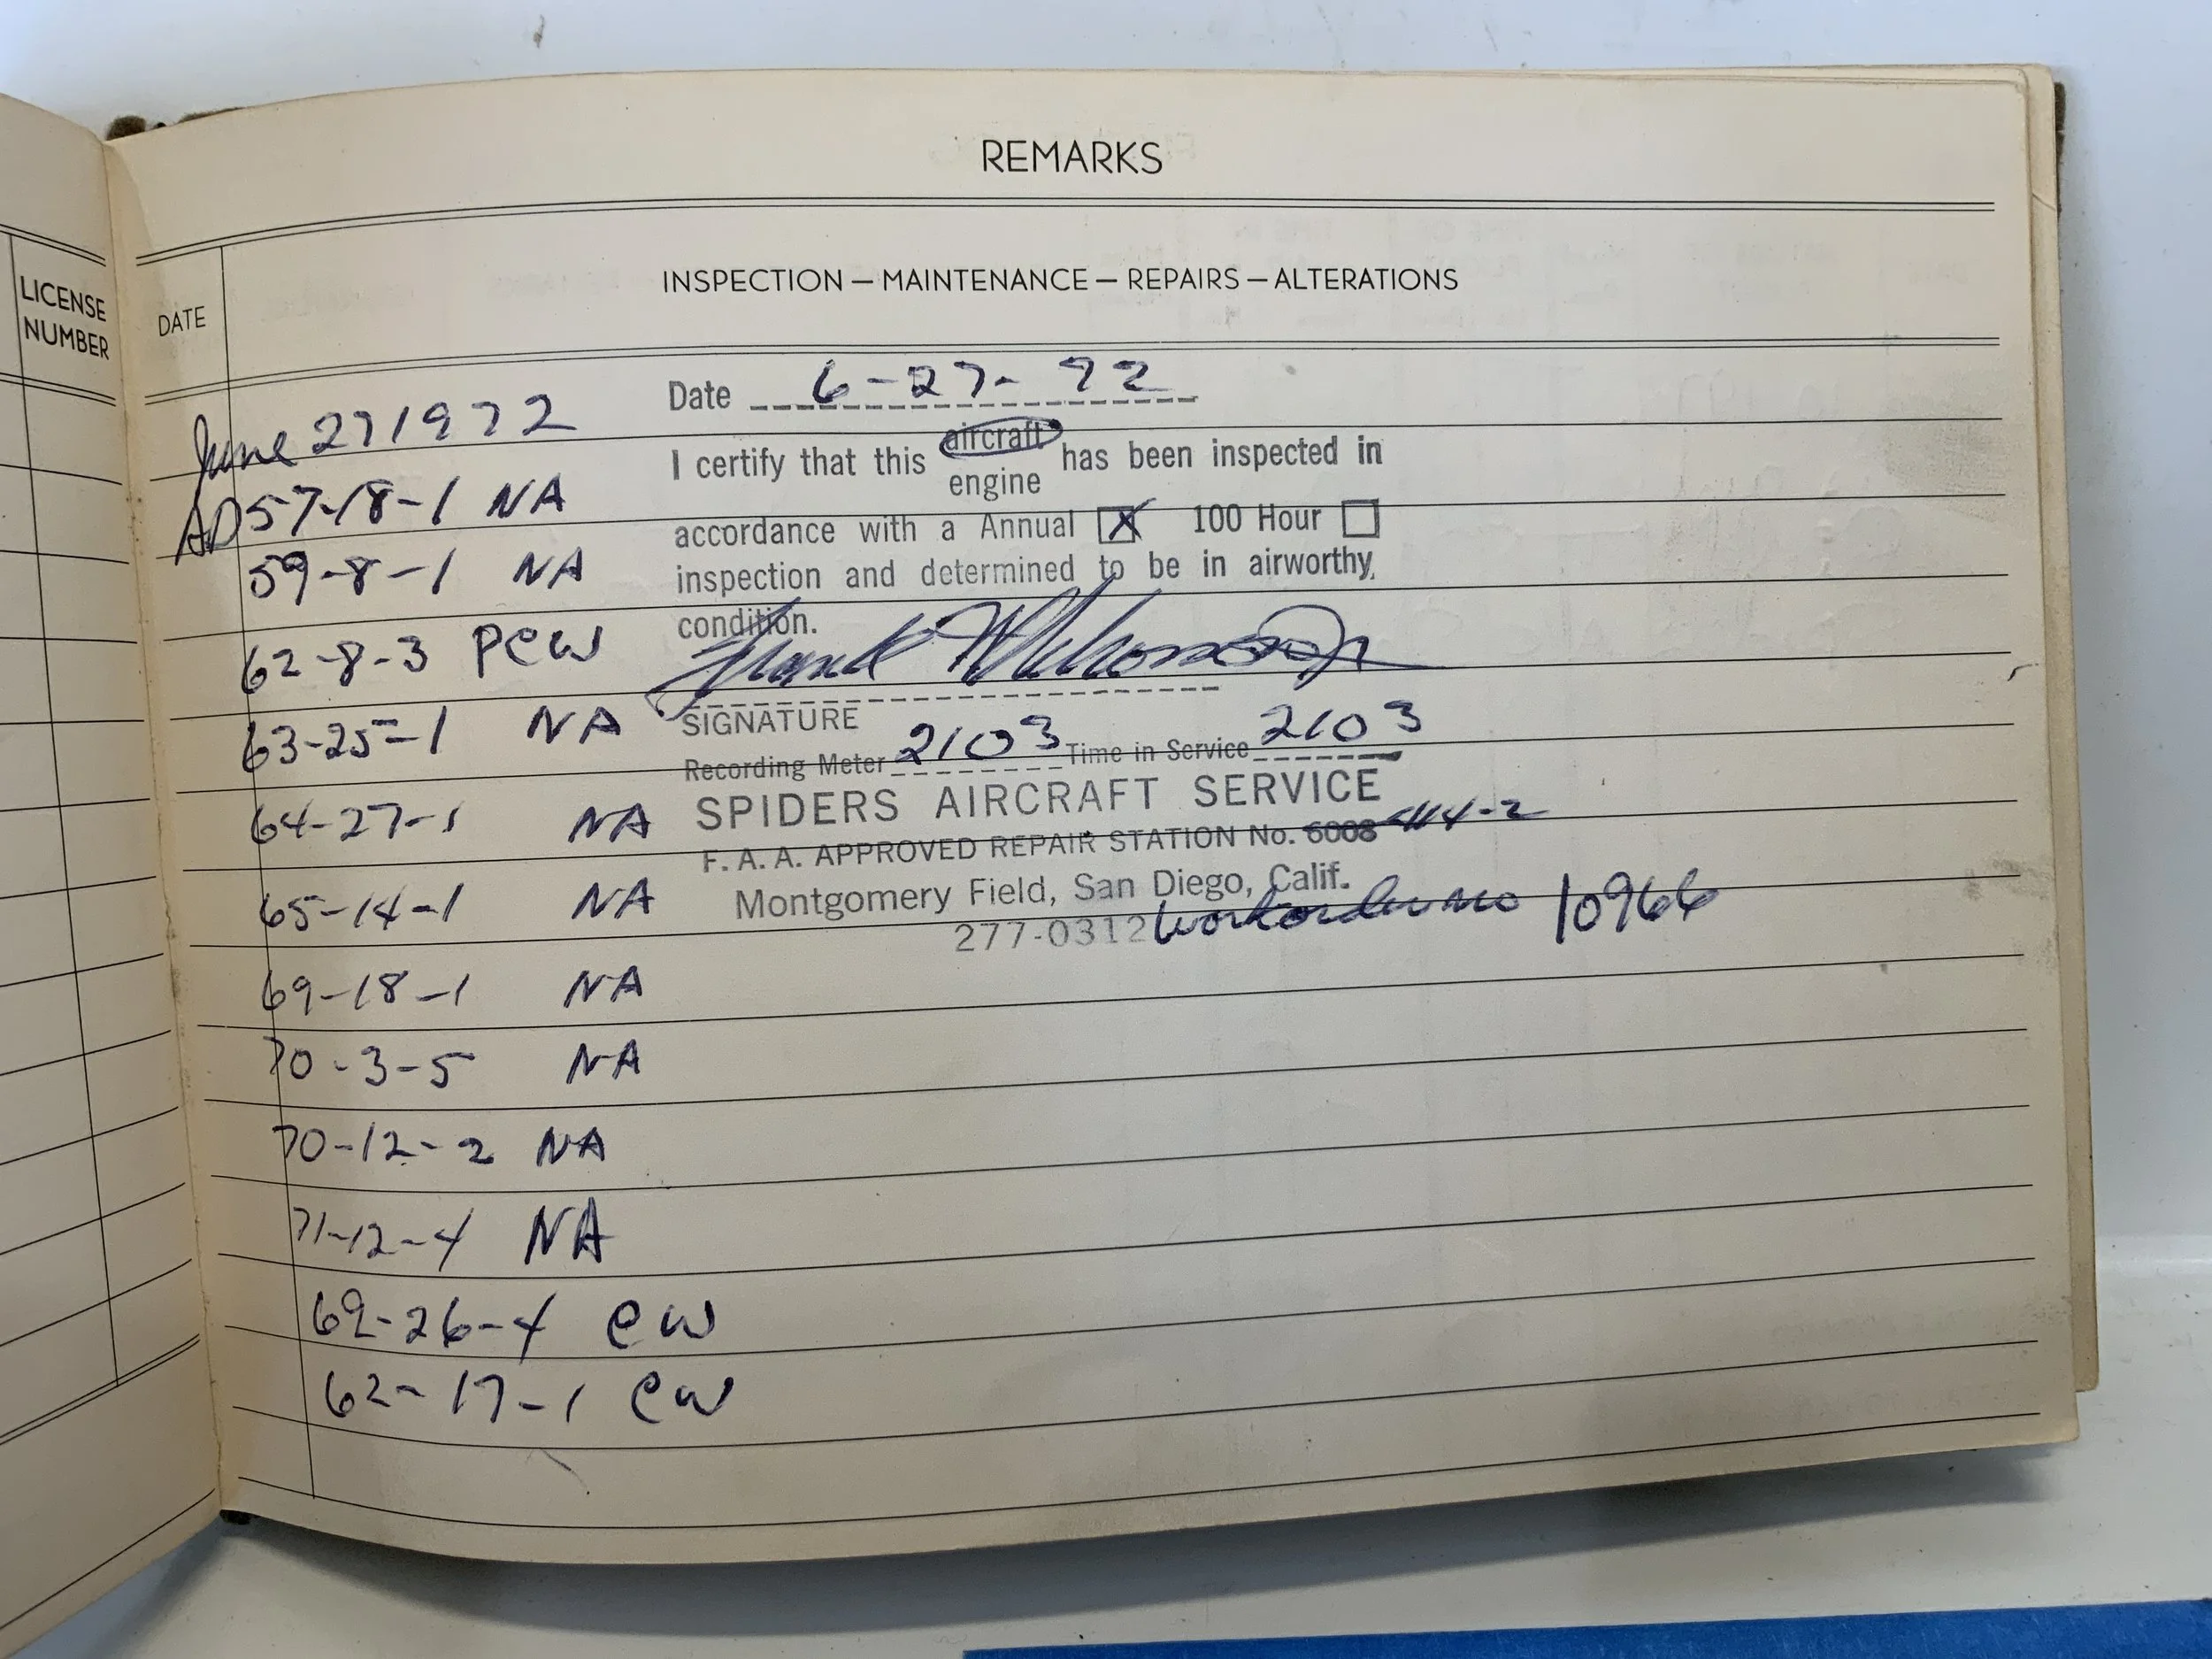 REMARKS
LICENSE
NUMBER
DATE
INSPECTION — MAINTENANCE — REPAIRS — ALTERATIONS
June 27 1972
AD 57-18-1 NA
59-8-1 NA
62-8-3 PCW
63-25-1 NA
64-27-1 NA
65-14-1 NA
69-18-1 NA
70-3-5 NA
70-12-2 NA
71-12-4 NA
69-26-4 CW
62-17-1 CW
Date 6-27-72
I certify that this aircraft has been inspected in
engine
accordance with a Annual X 100 Hour
inspection and determined to be in airworthy
condition.
Frank
SIGNATURE
Recording Meter 2103 Time in Service 2103
SPIDERS AIRCRAFT SERVICE
F. A. A. APPROVED REPAIR STATION No. 6008 414-2
Montgomery Field, San Diego, Calif.
277-0312 work order no 10966